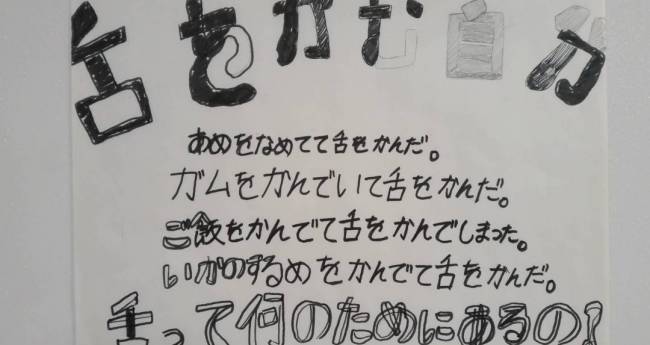 舌をかむ自分
あめをなめてて舌をかんだ。
ガムをかんでいて舌をかんだ。
ご飯をかんでて舌をかんでしまった。
いかのするめをかんでて舌をかんだ。
舌って何のためにあるの!